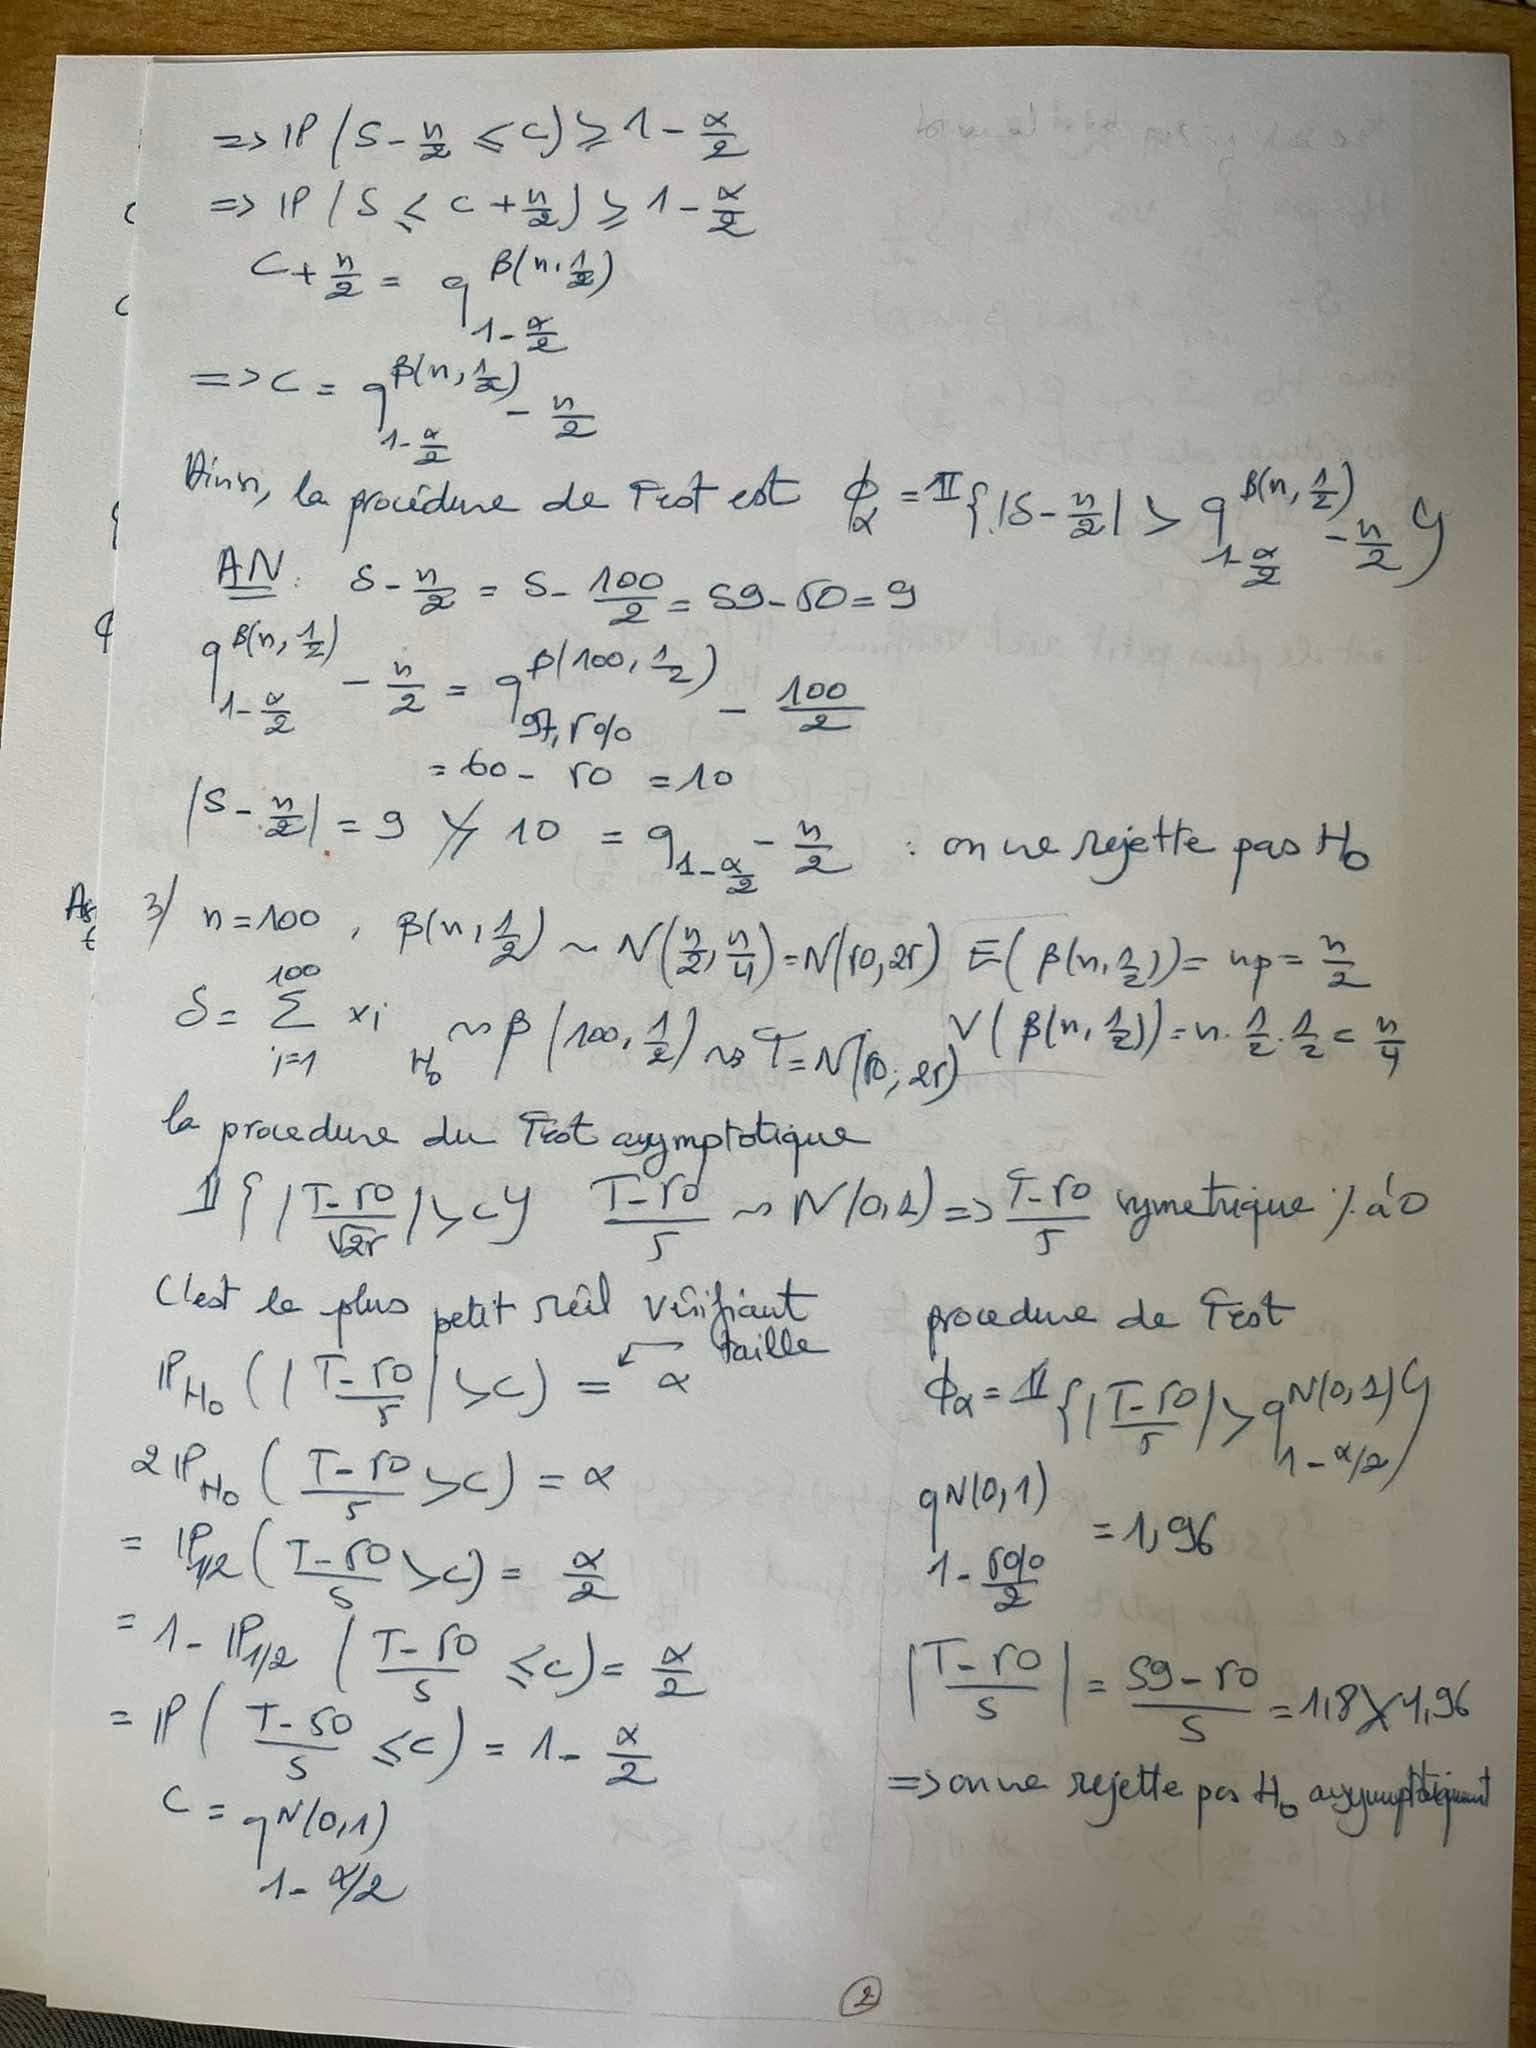 => IP (S - n/2 ≤ C) ≥ 1 - α/2
=> IP (S ≤ C + n/2) ≥ 1 - α/2
C + n/2 = q_{1-α/2}^{B(n, 1/2)}
=> C = q_{1-α/2}^{B(n, 1/2)} - n/2
Ainsi, la procédure de Test est ϕ_α = 1I{|S - n/2| > q_{1-α/2}^{B(n, 1/2)} - n/2}
AN : S - n/2 = S - 100/2 = 59 - 50 = 9
q_{1-α/2}^{B(n, 1/2)} - n/2 = q_{97,5%}^{B(100, 1/2)} - 100/2
= 60 - 50 = 10
|S - n/2| = 9 ≯ 10 = q_{1-α/2} - n/2 : on ne rejette pas H_0
3/ n = 100, B(n, 1/2) ~ N(n/2, n/4) = N(50, 25) E(B(n, 1/2)) = np = n/2
S = Σ_{i=1}^{100} xi ~_{H_0} B(100, 1/2) ~> T = N(50, 25) V(B(n, 1/2)) = n · 1/2 · 1/2 = n/4
la procedure du Test asymptotique
1I{|T - 50/√25| > C} T - 50/5 ~ N(0, 1) => T - 50/5 symetrique %. à 0
C'est le plus petit réel vérifiant
taille
IP_{H_0} (|T - 50/5| > C) = α
2 IP_{H_0} (T - 50/5 > C) = α
= IP_{1/2} (T - 50/5 > C) = α/2
= 1 - IP_{1/2} (T - 50/5 ≤ C) = α/2
= IP (T - 50/5 ≤ C) = 1 - α/2
C = q_{1-α/2}^{N(0, 1)}
procedure de Test
ϕ_α = 1I{|T - 50/5| > q_{1-α/2}^{N(0, 1)}}
q_{1-5%/2}^{N(0, 1)} = 1,96
|T - 50/5| = 59 - 50/5 = 1,8 ≯ 1,96
=> on ne rejette pas H_0 asymptotiquement
2